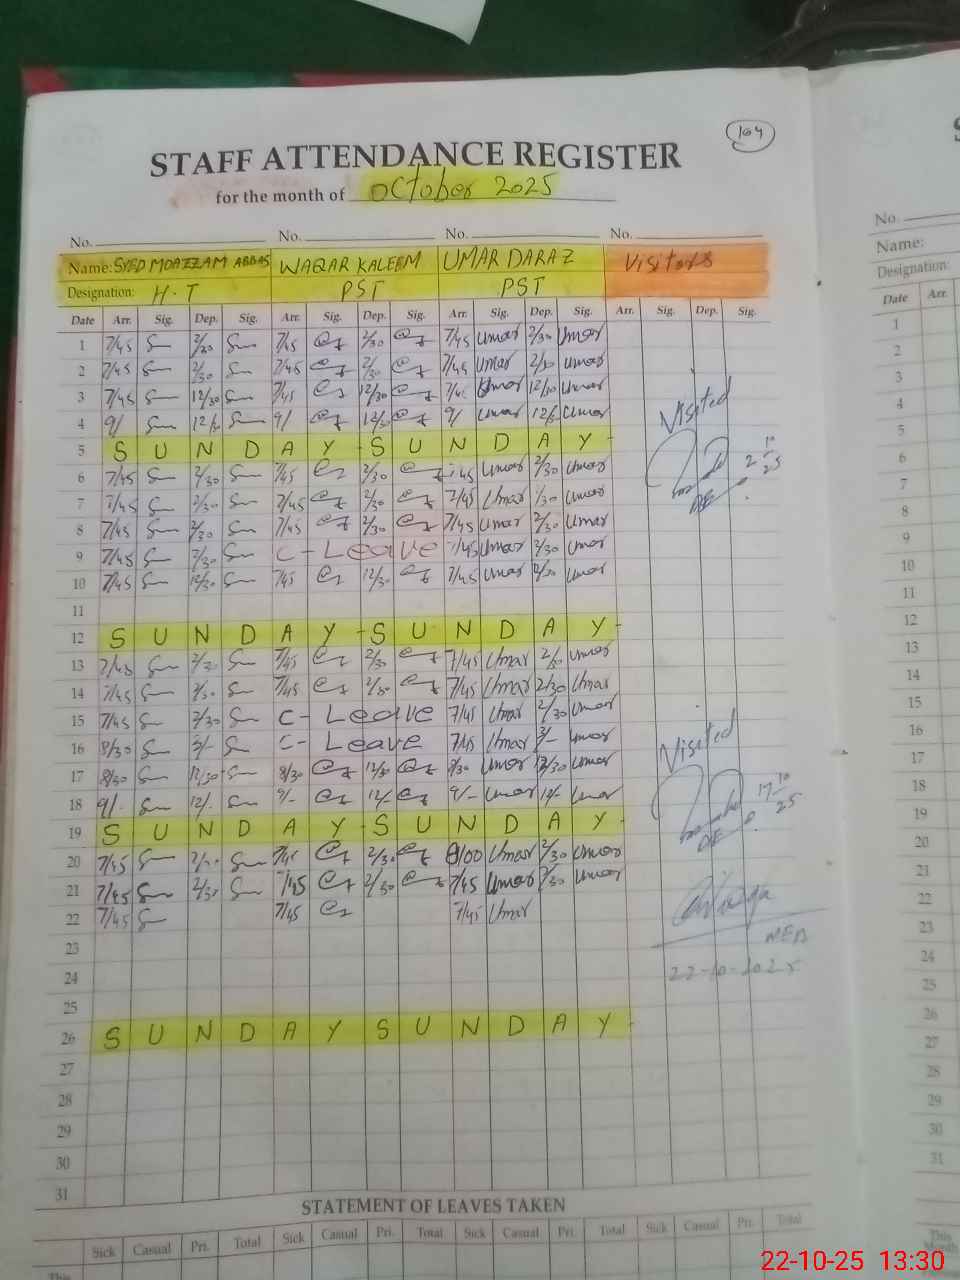 164
STAFF ATTENDANCE REGISTER
for the month of October 2025
No. No. No. No.
Name: SYED MOAZZAM ABBAS WAQAR KALEEM UMAR DARAZ Visitors
Designation: H.T PST PST
Date Arr. Sig. Dep. Sig. Arr. Sig. Dep. Sig. Arr. Sig. Dep. Sig. Arr. Sig. Dep. Sig.
1 7/45 2/30 7/45 2/30 7/45 Umar 2/30 Umar
2 7/45 2/30 7/45 2/30 7/45 Umar 2/30 Umar
3 7/45 12/30 7/45 12/30 7/45 Umar 12/30 Umar
4 9/ 9/ 12/30 9/ Umar Umar
Visited
5 S U N D A Y - S U N D A Y
6 7/45 2/30 7/45 2/30 Umar 2/30 Umar
2 10 25
7 7/45 2/30 7/45 2/30 7/45 Umar Umar
8 7/45 2/30 7/45 2/30 7/45 Umar 2/30 Umar
9 7/45 2/30 C - Leave 7/45 Umar 2/30 Umar
10 7/45 12/30 7/45 12/30 7/45 Umar Umar
11
12 S U N D A Y - S U N D A Y
13 7/45 2/30 7/45 2/30 7/45 Umar 2/30 Umar
14 7/45 2/30 7/45 2/30 7/45 Umar 2/30 Umar
15 7/45 2/30 C - Leave 7/45 Umar 2/30 Umar
16 8/30 C - Leave 7/45 Umar Umar
Visited
17 8/30 12/30 8/30 12/30 8/30 Umar 12/30 Umar
18 9/- 12/- 9/- 12/- 9/- Umar 12/- Umar
17 10 25
19 S U N D A Y - S U N D A Y
20 7/45 7/45 2/30 8/00 Umar 2/30 Umar
21 7/45 2/30 7/45 2/30 7/45 Umar 2/30 Umar
22 7/45 7/45 7/45 Umar
23
24
22-10-2025
25
26 S U N D A Y S U N D A Y
27
28
29
30
31
STATEMENT OF LEAVES TAKEN
Sick Casual Pri. Total Sick Casual Pri. Total Sick Casual Pri. Total Sick Casual Pri. Total
This
No.
Name:
Designation:
Date Arr.
1
2
3
4
5
6
7
8
9
10
11
12
13
14
15
16
17
18
19
20
21
22
23
24
25
26
27
28
29
30
31
This
Month
22-10-25 13:30